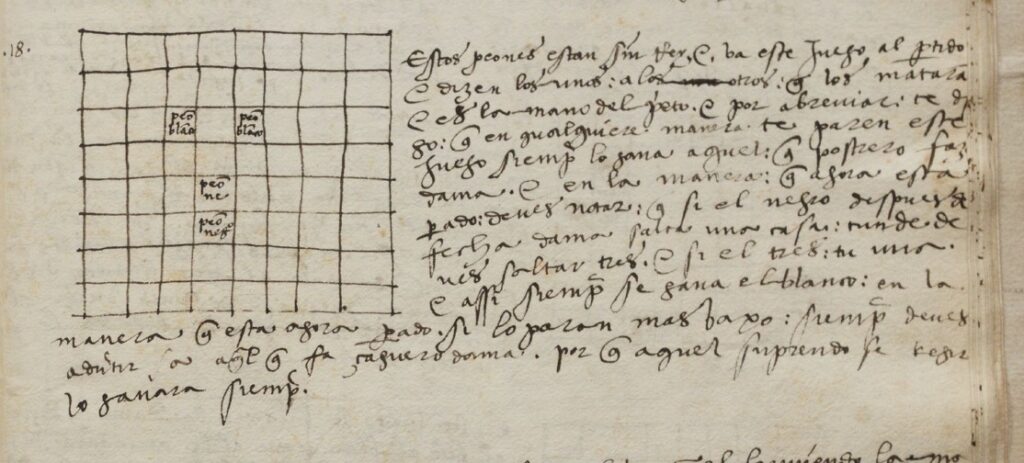 .18.
peo blāco
peo blāco
peo ne
peo negº
Estos peones estan sin Rey, e va este Juego al ꝑtido
e dizen los unos: a los otros: q̄ los matara
e es la mano del prieto. e por abreviar: te di
go: q̄ en qualquiere manera te paren este
Juego siemp̄ lo gana aquel: q̄ postrero faz
dama. e en la manera: q̄ ahora esta
ꝑado: deves notar: q̄ si el negro despues de
fecha dama salta una casa: tu nde de
ves saltar tres. e si el tres: tu una.
e assi siemp̄ se gana el blanco: en la
manera q̄ esta ahora ꝑado. si lo paran mas baxo: siemp̄ deves
a aq̄l q̄ fa dama. por q̄ aquel se regir
lo ganara siemp̄.